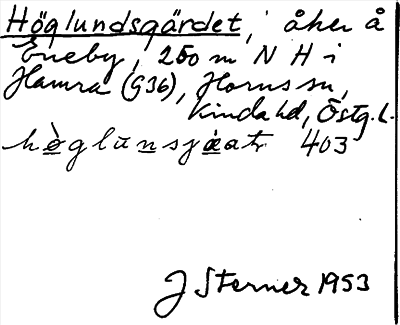 Höglundsgärdet, åker å
Eneby, 250 m N H i
Hamra (G36), Horns sn,
Kinda hd, Östg. l.
403
J Sterner 1953